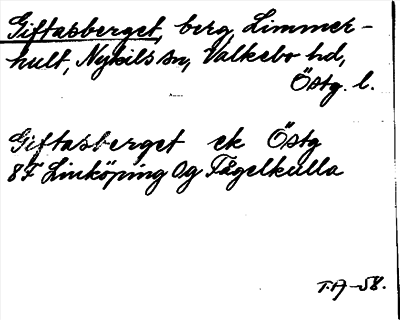 Giftasberget, berg, Limmer-
hult, Nykils sn, Valkebo hd,
Östg. l.
Giftasberget ek Östg
8F Linköping Og Fågelkulla
T.A-58.